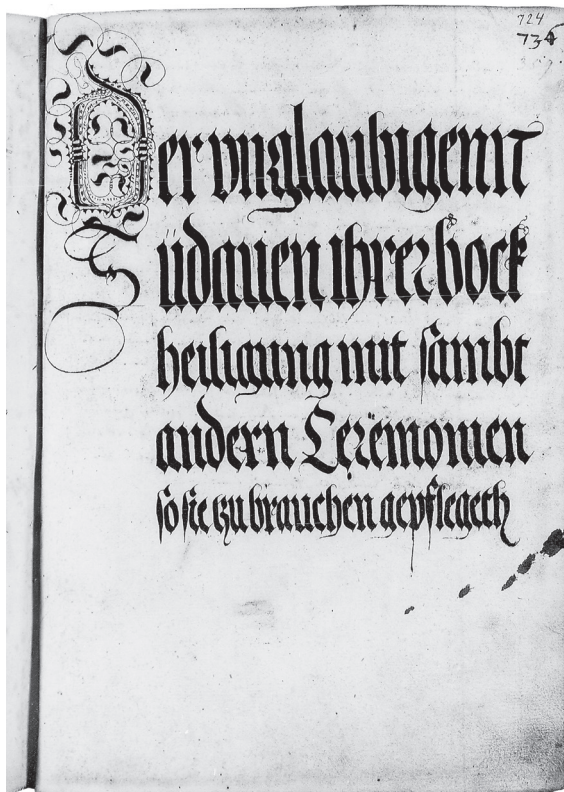 724
734
Der vnglaubigenn
Südauen ihrer bock
heiligung mit sambt
andern Ceremonien
so sie tzu brauchen gepflegeth